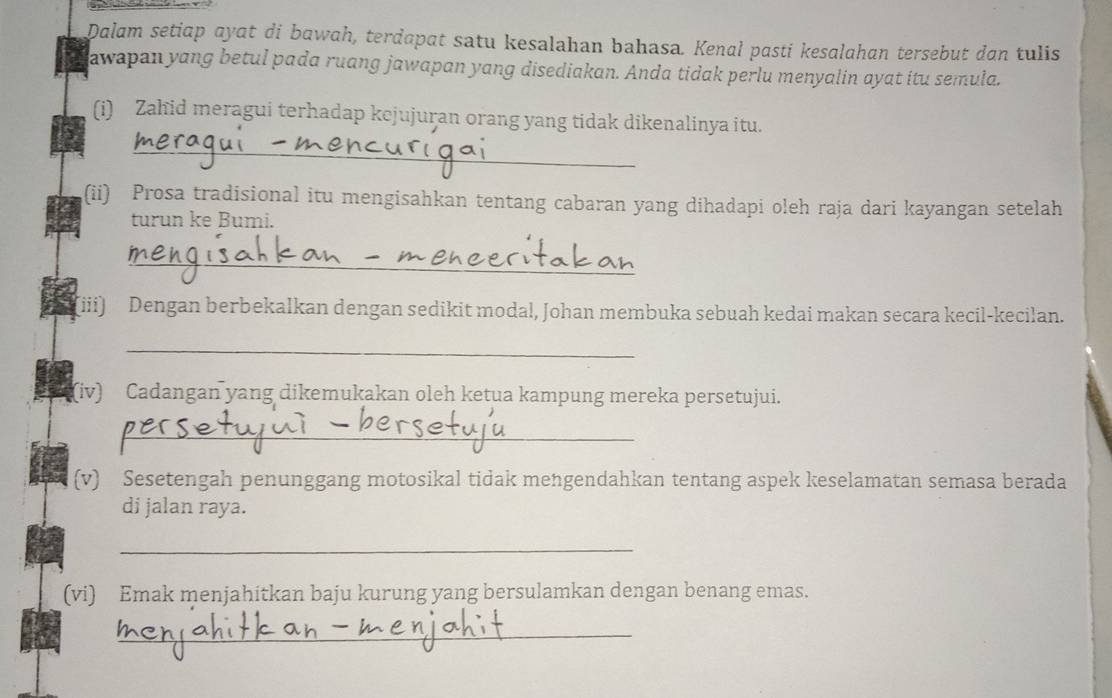 Dalam setiap ayat di bawah, terdapat satu kesalahan bahasa. Kenal pasti kesalahan tersebut dan tulis
jawapan yang betul pada ruang jawapan yang disediakan. Anda tidak perlu menyalin ayat itu semula.
(i) Zahid meragui terhadap kejujuran orang yang tidak dikenalinya itu.
meragui - mencurigai
(ii) Prosa tradisional itu mengisahkan tentang cabaran yang dihadapi oleh raja dari kayangan setelah
turun ke Bumi.
mengisahkan - menceritakan
(iii) Dengan berbekalkan dengan sedikit modal, Johan membuka sebuah kedai makan secara kecil-kecilan.
(iv) Cadangan yang dikemukakan oleh ketua kampung mereka persetujui.
persetujui - bersetuju
(v) Sesetengah penunggang motosikal tidak mengendahkan tentang aspek keselamatan semasa berada
di jalan raya.
(vi) Emak menjahitkan baju kurung yang bersulamkan dengan benang emas.
menjahitkan - menjahit